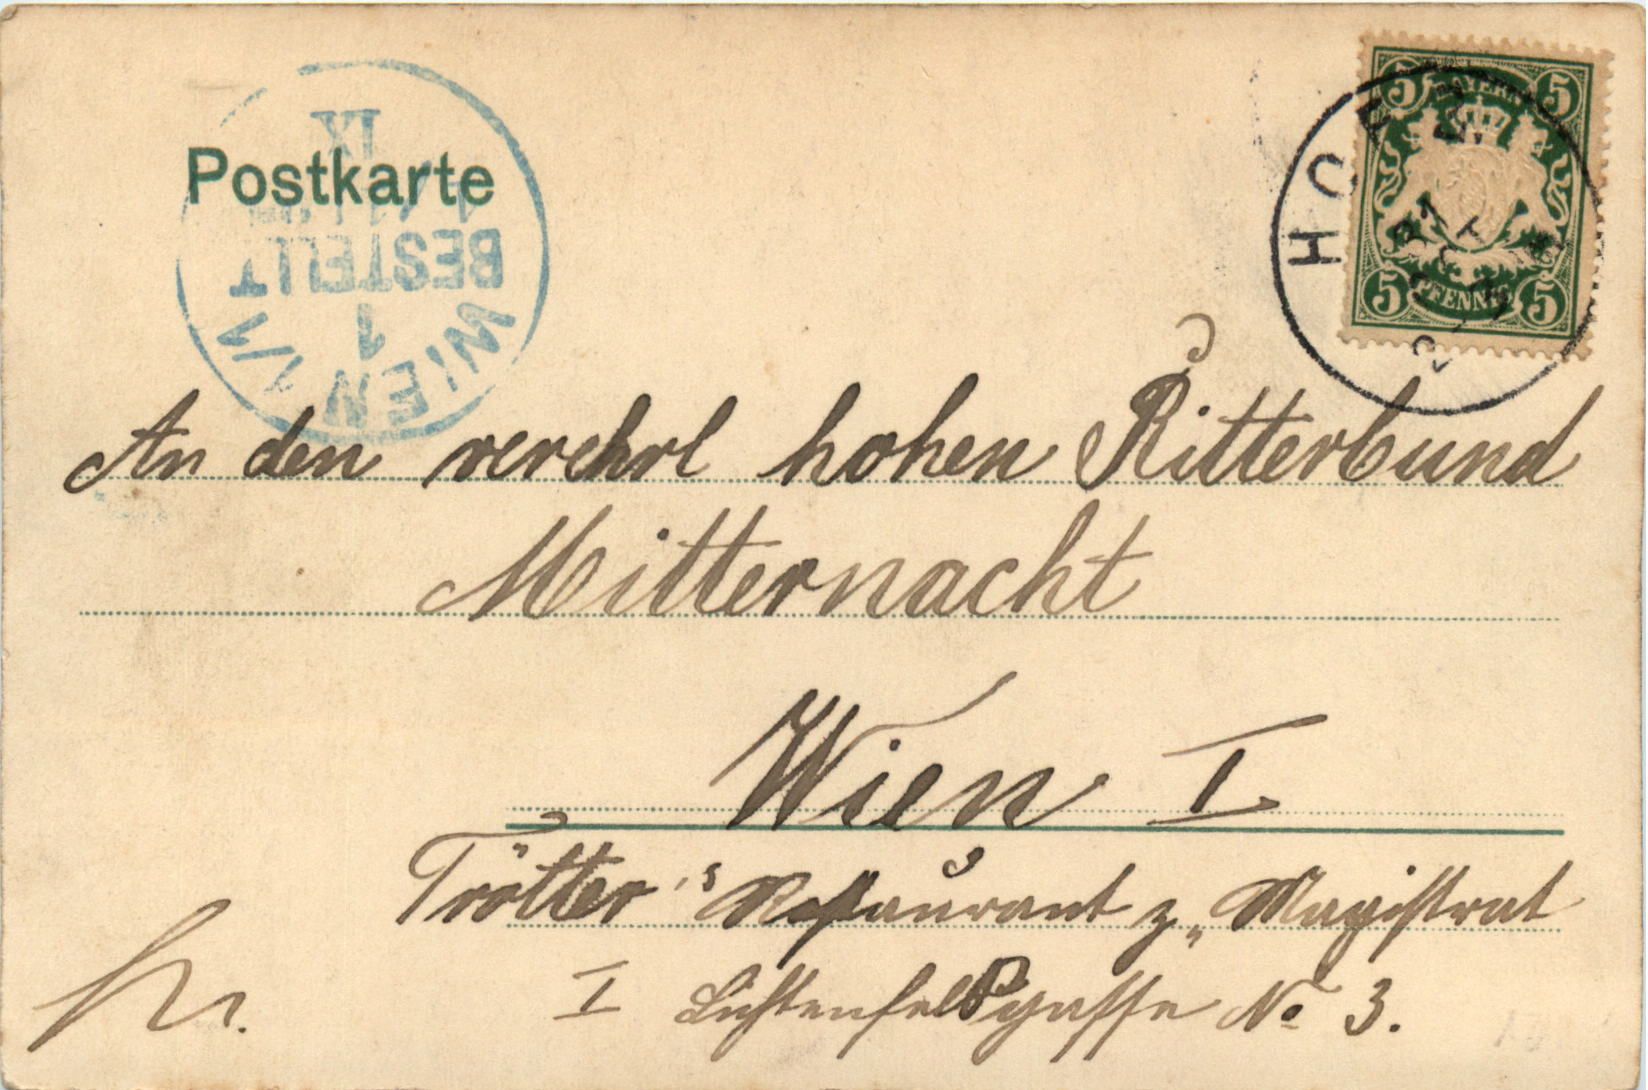 Postkarte
WIEN 1/1
1
BESTELLT
IX
HOF
BAYERN
5 5
PFENNIG
5 5
An den verehrl hohen Ritterbund
Mitternacht
Wien I
Trötter's Restaurant z„ Magistrat
I Lichtenfelsgasse No 3.